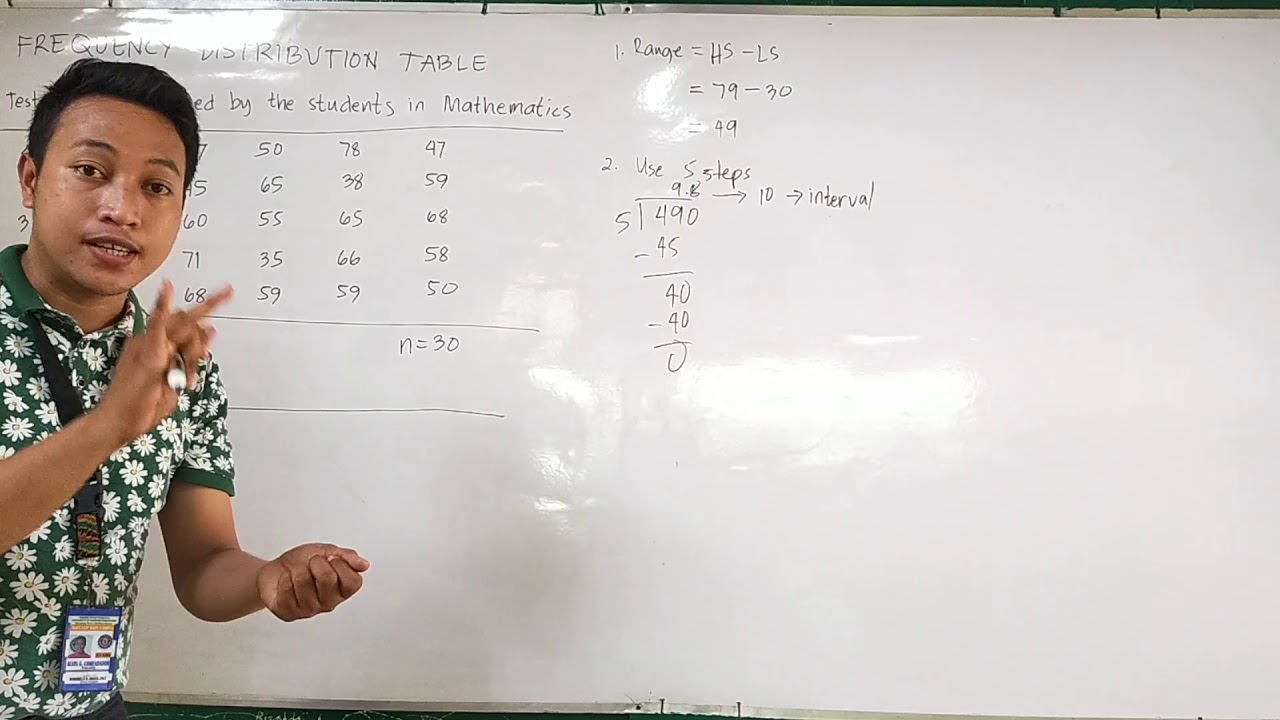 FREQUENCY DISTRIBUTION TABLE
by the students in Mathematics
50 78 47
65 38 59
60 55 65 68
71 35 66 58
68 59 59 50
n=30
1. Range = HS - LS
= 79 - 30
= 49
2. Use 5 steps
9.8 → 10 → interval
5 490
- 45
40
- 40
0